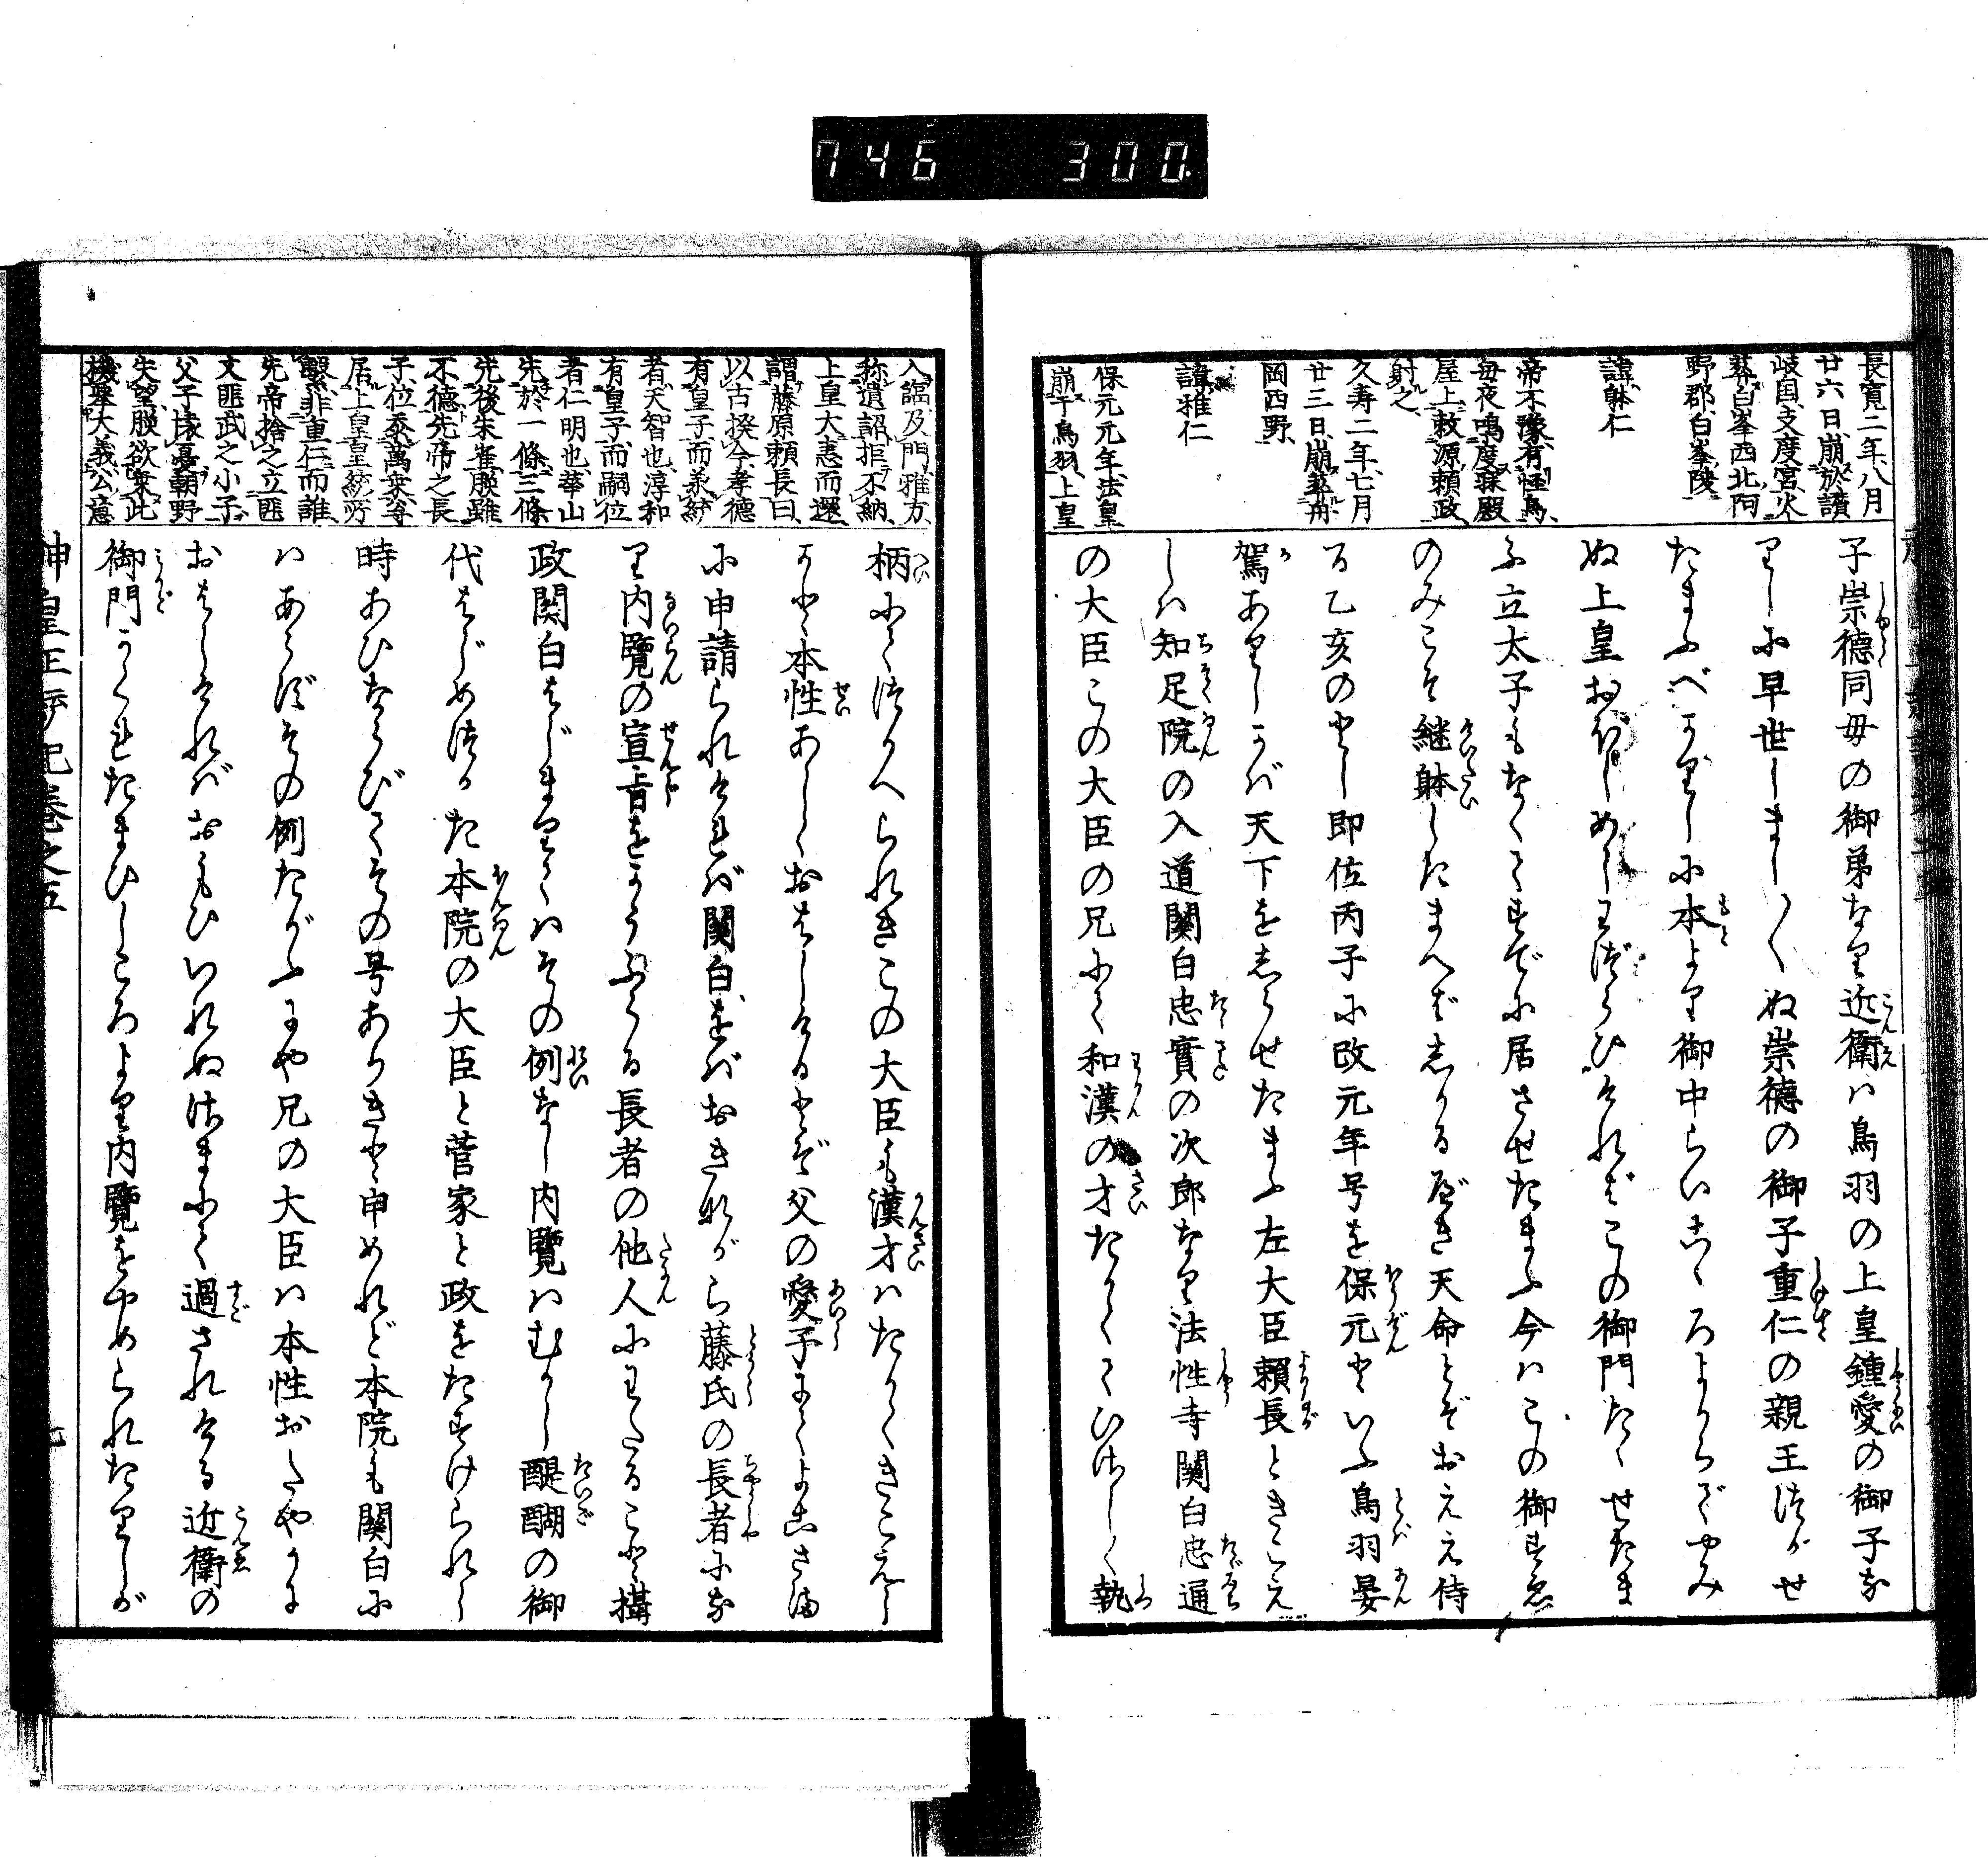 746 300.
長寛二年八月
廿六日崩於讃
岐国支度宮火
葬白峯西北阿
野郡白峯陵
諱躰仁
帝不豫有怪鳥
毎夜鳴度寐殿
屋上敕源頼政
射之
久寿二年七月
廿三日崩葬舟
岡西野
諱雅仁
保元元年法皇
崩于鳥羽上皇
子崇徳同母の御弟なり近衛ハ鳥羽の上皇鍾愛の御子な
りしに早世しまし〳〵ぬ崇徳の御子重仁の親王つかせ
たまふべかりしに本より御中らひこゝろよからでやみ
ぬ上皇おぼしめしわづらひけれどこの御門たゝせたま
ふ立太子もなくてすぐに居させたまふ今ハこの御すゑ
のみこそ継躰したまへばしかるべき天命とぞおえ侍
る乙亥のとし即位丙子に改元年号を保元といふ鳥羽晏
駕ありしかバ天下をしらせたまふ左大臣頼長ときこえ
しハ知足院の入道関白忠實の次郎なり法性寺関白忠通
の大臣この大臣の兄にて和漢の才たかくてひさしく執
入臨及門雅方
称遺詔拒不納
上皇大恚而還
謂藤原頼長曰
以古揆今孝徳
有皇子而承統
者天智也淳和
有皇子而嗣位
者仁明也華山
先於一條三條
先後朱雀朕雖
不德先帝之長
子位忝萬乗尊
居上皇皇統所
繫非重仁而誰
先帝捨之立匪
文匪武之小子
父子掾憂朝野
失望朕欲乗此
機舉大義公意
柄にてつかへられきこの大臣も漢才ハたかくきこえし
かど本性あしくおはしけるとぞ父の愛子にてよこさま
に申請られけれバ関白をバおきながら藤氏の長者にな
り内覧の宣旨をかうふる長者の他人にわたること攝
政関白はじまりてハその例なし内覧ハむかし醍醐の御
代はじめつかた本院の大臣と菅家と政をたすけられし
時あひならびてその号ありきと申めれど本院も関白に
ハあらずその例たがふにや兄の大臣ハ本性おたやかに
おはしけれバおもひいれぬさまにて過されける近衛の
御門かくれたまひしころより内覧をやめられたりしが
神皇正統記巻之五